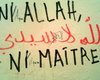 NI ALLAH,
الله لا سيدي
NI MAITRE